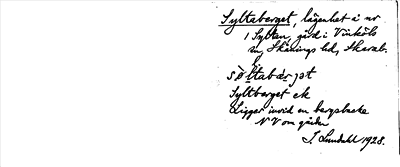 Syltaberget, lägenhet å nr
1 Sylten, gård i Vinköls
sn, Skånings hd, Skarab.
Syltberget ek
Ligger invid en bergsbacke
NV om gården
I. Lundahl 1928.